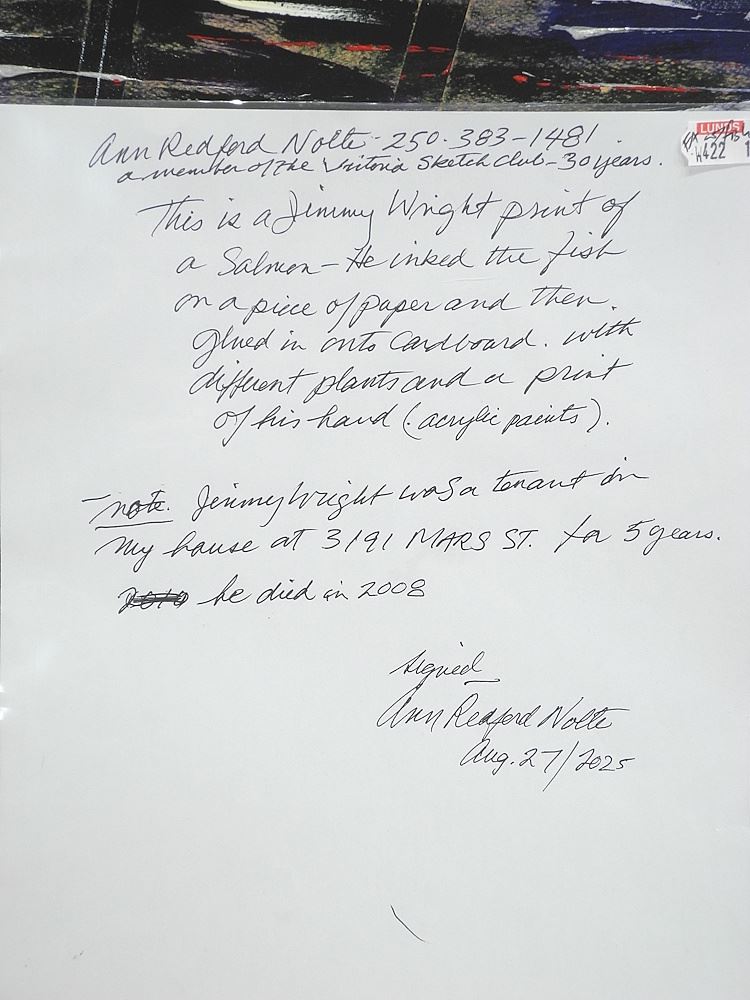 Ann Redford Nolte - 250-383-1481
a member of the Victoria Sketch Club - 30 years.
LUND'S
4422 1
This is a Jimmy Wright print of
a Salmon - He inked the fish
on a piece of paper and then
glued in onto Cardboard. with
different plants and a print
of his hand (acrylic paints).
- note. Jimmy Wright was a tenant in
My house at 3191 MARS ST. for 5 years.
he died in 2008
signed
Ann Redford Nolte
Aug. 27/2025